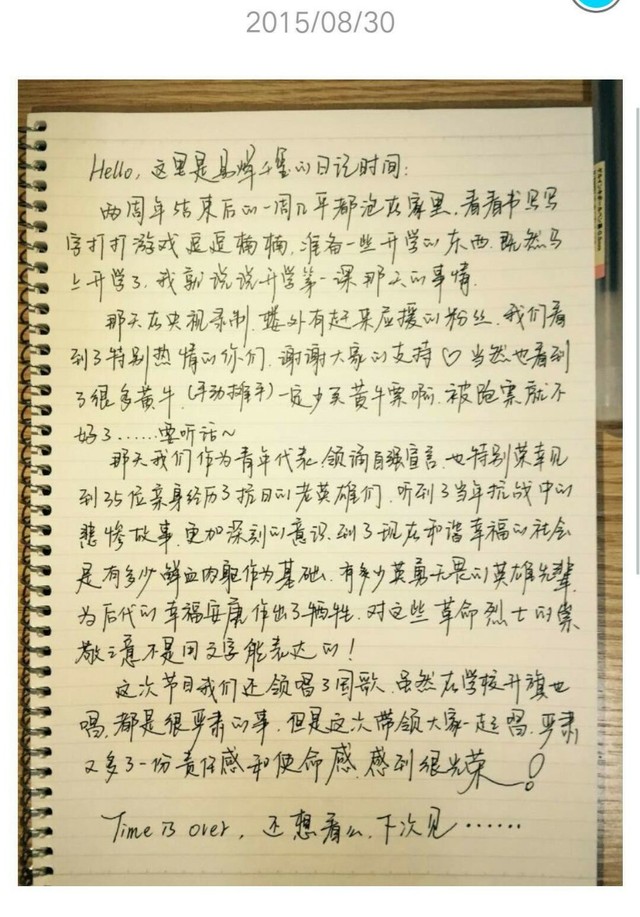 2015/08/30
Hello, 这里是易烊千玺的日记时间:
两周年结束后的一周几乎都泡在家里.看看书写写
字打打游戏逗逗楠楠,准备一些开学的东西.既然马
上开学了,我就说说开学第一课那天的事情.
那天在央视录制,楼外有赶来应援的粉丝.我们看
到了特别热情的你们,谢谢大家的支持♡当然也看到
了很多黄牛(手动摊手)一定少买黄牛票啊.被跑票就不
好了……要听话~
那天我们作为青年代表,领诵自强宣言.也特别荣幸见
到35位亲身经历了抗日的老英雄们.听到了当年抗战中的
悲惨故事.更加深刻的意识到了现在和谐幸福的社会
是有多少鲜血肉躯作为基础.有多少英勇无畏的英雄先辈
为后代的幸福安康作出了牺牲.对这些革命烈士的崇
敬之意不是用文字能表达的!
这次节目我们还领唱了国歌.虽然在学校升旗也
唱,都是很严肃的事.但是这次带领大家一起唱.严肃
又多了一份责任感和使命感.感到很光荣!
Time is over, 还想看么,下次见……